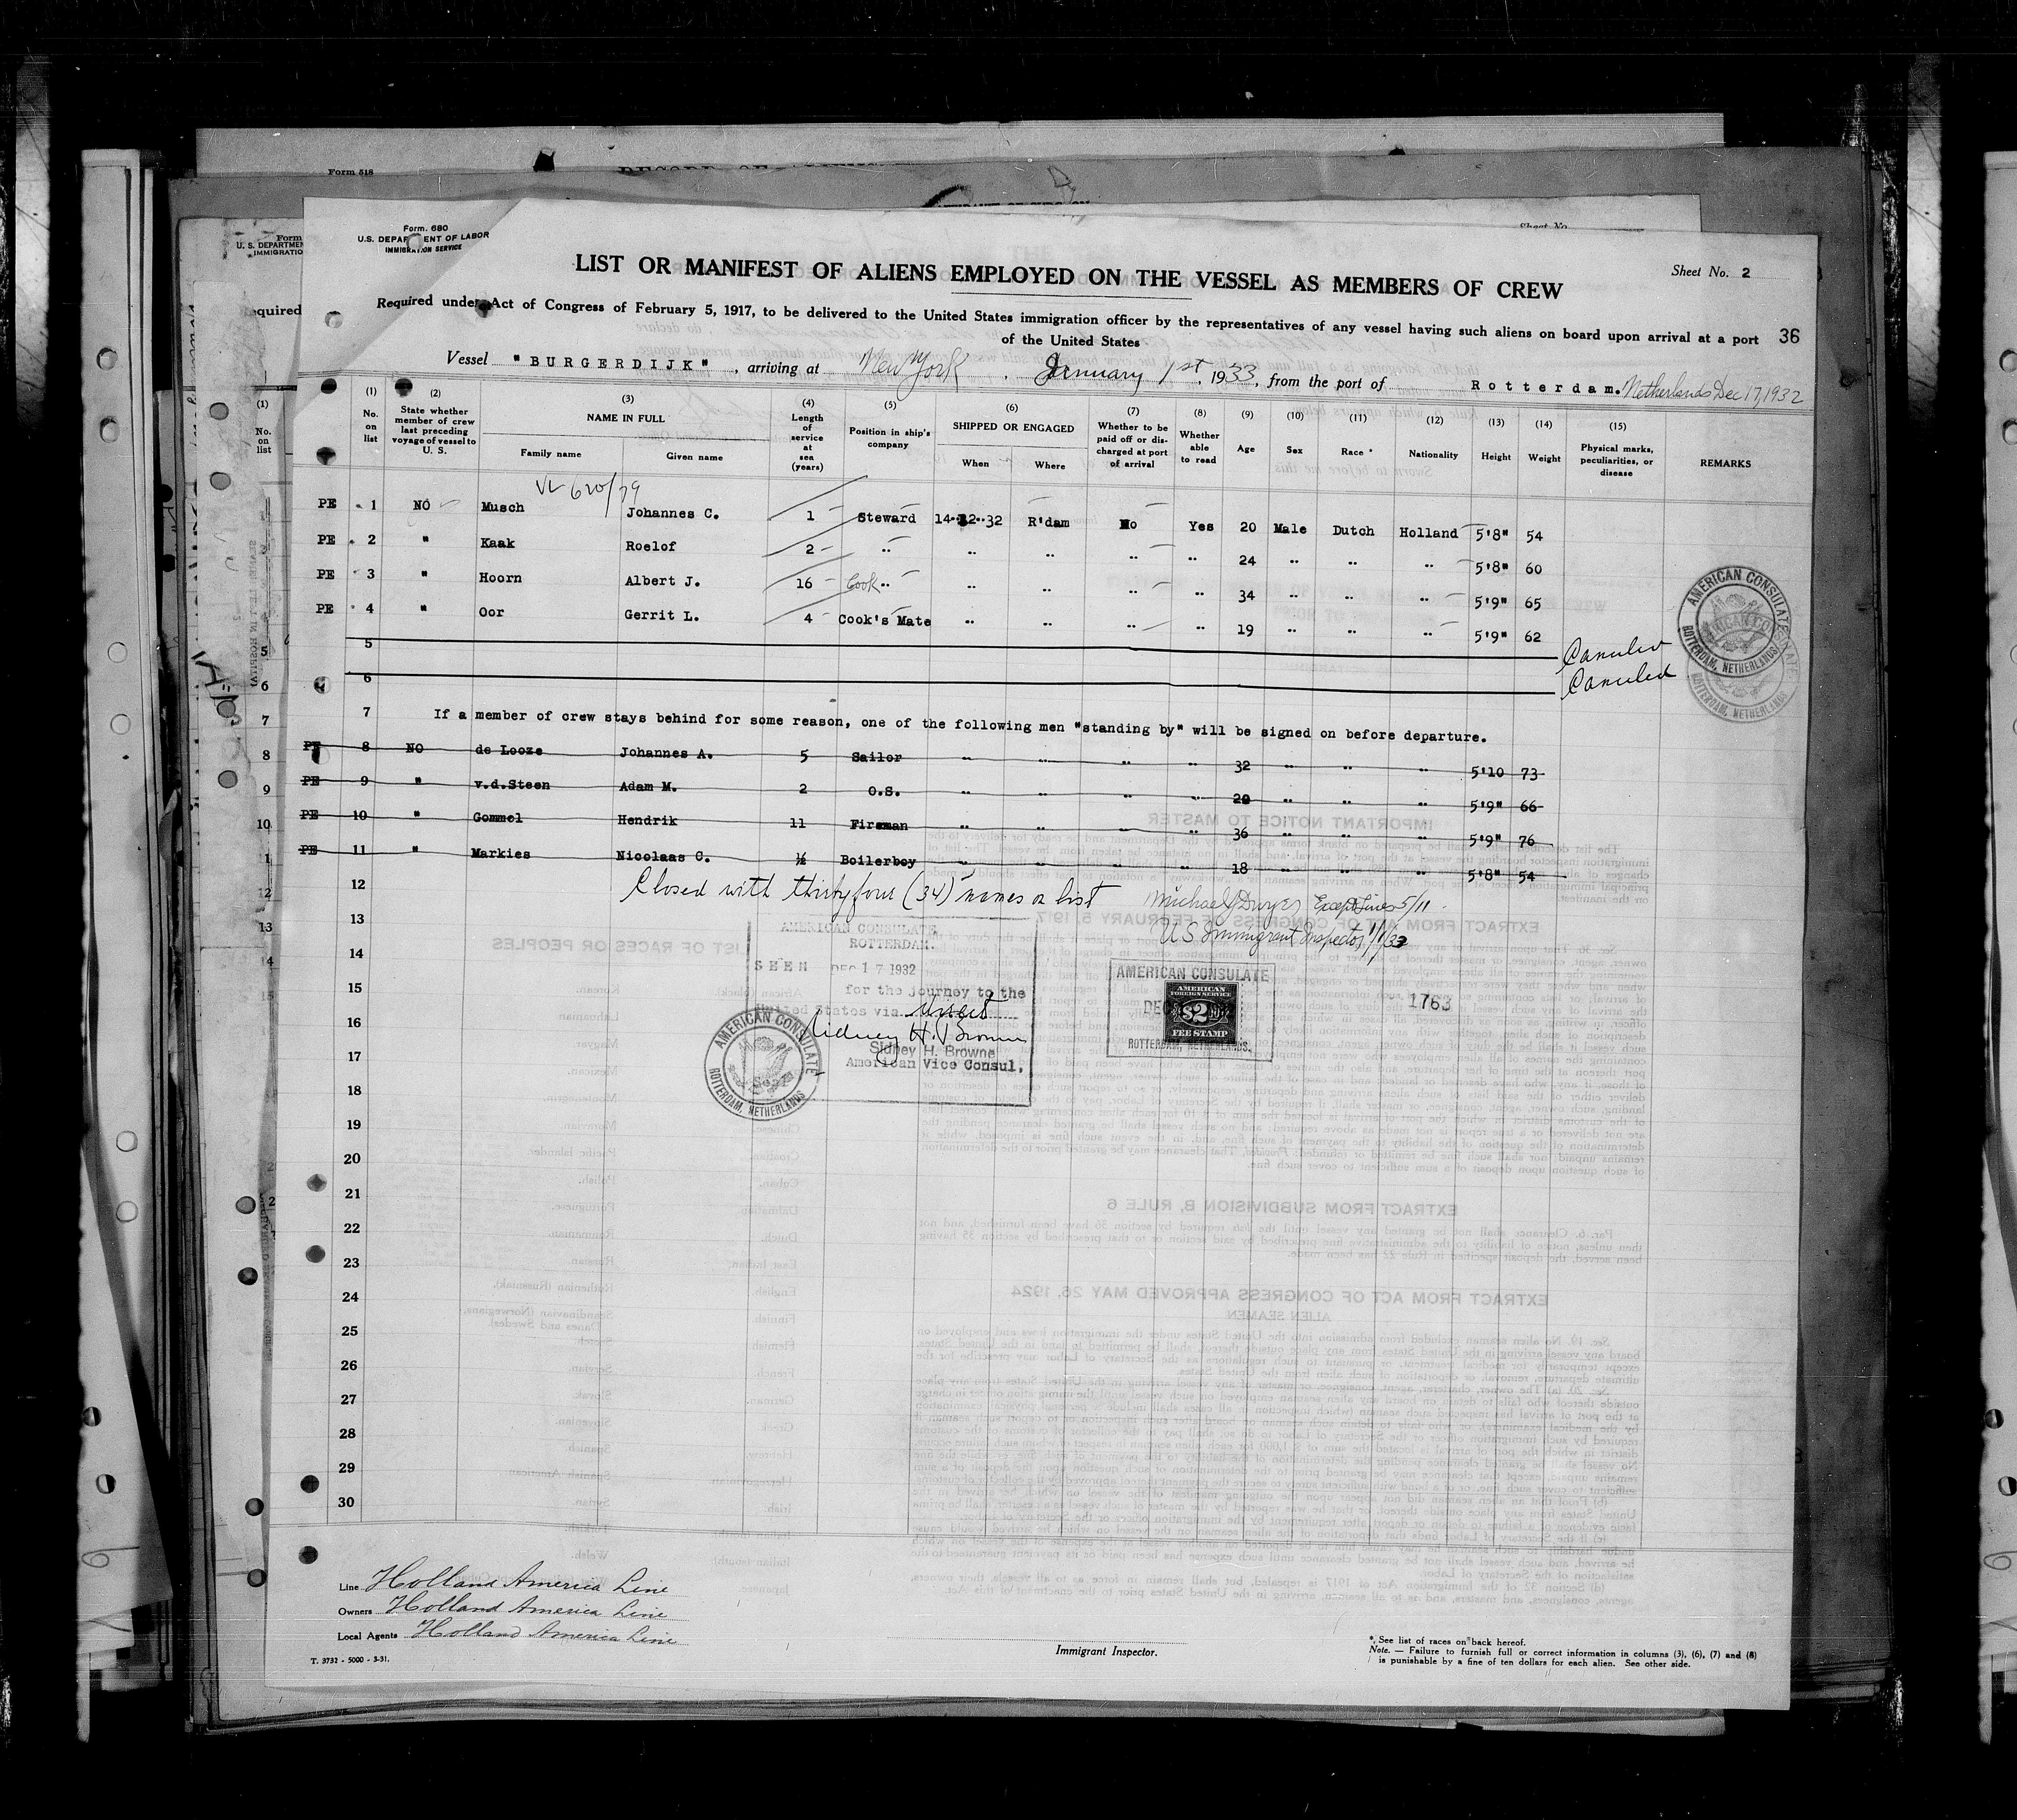 Form 518
Form. 680
U.S. DEPARTMENT OF LABOR
IMMIGRATION SERVICE
Sheet No. 2
LIST OR MANIFEST OF ALIENS EMPLOYED ON THE VESSEL AS MEMBERS OF CREW
Required under Act of Congress of February 5, 1917, to be delivered to the United States immigration officer by the representatives of any vessel having such aliens on board upon arrival at a port
of the United States
36
Vessel "BURGERDIJK", arriving at New York, January 1st, 1933, from the port of Rotterdam. Netherlands Dec 17, 1932
(1) No. on list (2) State whether member of crew last preceding voyage of vessel to U. S. (3) NAME IN FULL Family name Given name (4) Length of service at sea (years) (5) Position in ship's company (6) SHIPPED OR ENGAGED When Where (7) Whether to be paid off or discharged at port of arrival (8) Whether able to read (9) Age (10) Sex (11) Race * (12) Nationality (13) Height (14) Weight (15) Physical marks, peculiarities, or disease REMARKS
VL 620/79
PE 1 NO Musch Johannes C. 1 Steward 14-12-32 R'dam No Yes 20 Male Dutch Holland 5'8" 54
PE 2 " Kaak Roelof 2 " " " " " 24 " " " 5'8" 60
PE 3 " Hoorn Albert J. 16 Cook " " " " " 34 " " " 5'9" 65
PE 4 " Oor Gerrit L. 4 Cook's Mate " " " " 19 " " " 5'9" 62
5 Canceled
6 Canceled
7 If a member of crew stays behind for some reason, one of the following men "standing by" will be signed on before departure.
PE 8 NO de Looze Johannes A. 5 Sailor " " " " 32 " " " 5'10 73
PE 9 " v.d.Steen Adam M. 2 O.S. " " " " 20 " " " 5'9" 66
PE 10 " Gommel Hendrik 11 Fireman " " " " 36 " " " 5'9" 76
PE 11 " Markies Nicolaas C. ½ Boilerboy " " " " 18 " " " 5'8" 54
12 Closed with thirty four (34) names on list Michael J Dwyer Except Lines 5/11
13 US Immigrant Inspector 1/1/33
14
15
16
17
18
19
20
21
22
23
24
25
26
27
28
29
30
AMERICAN CONSULATE
ROTTERDAM.
SEEN DEC 17 1932
for the journey to the
United States via
Sidney H. Browne
Sidney H. Browne
American Vice Consul.
AMERICAN CONSULATE
ROTTERDAM, NETHERLANDS
AMERICAN CONSULATE
AMERICAN
FOREIGN SERVICE
$2
FEE STAMP
ROTTERDAM, NETHERLANDS.
1763
AMERICAN CONSULATE
ROTTERDAM, NETHERLANDS
Line Holland America Line
Owners Holland America Line
Local Agents Holland America Line
T. 3732 - 5000 - 3-31.
Immigrant Inspector.
*. See list of races on back hereof.
Note. — Failure to furnish full or correct information in columns (3), (6), (7) and (8)
is punishable by a fine of ten dollars for each alien. See other side.